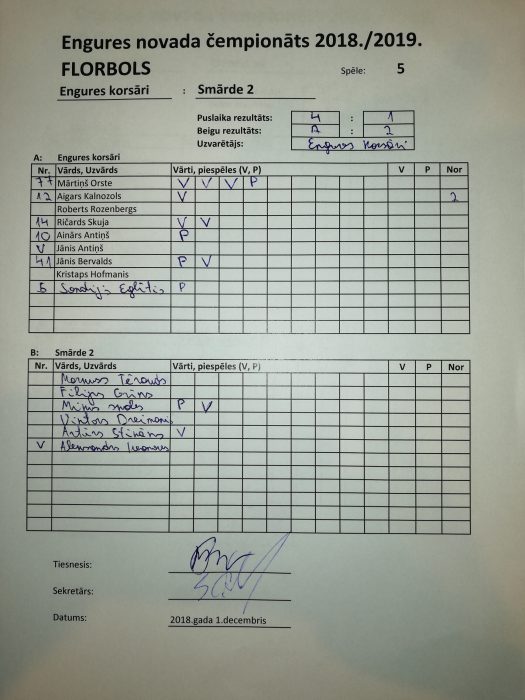 Engures novada čempionāts 2018./2019.
FLORBOLS
Spēle: 5
Engures korsāri : Smārde 2
Puslaika rezultāts: 4 : 1
Beigu rezultāts: : 2
Uzvarētājs: Engures Korsāri
A: Engures korsāri
Nr. Vārds, Uzvārds Vārti, piespēles (V, P) V P Nor
77 Mārtiņš Orste V V V P
12 Aigars Kalnozols V 2
Roberts Rozenbergs
14 Ričards Skuja V V
10 Ainārs Antiņš P
V Jānis Antiņš
41 Jānis Bervalds P V
Kristaps Hofmanis
5 Sandijs Eglītis P
B: Smārde 2
Nr. Vārds, Uzvārds Vārti, piespēles (V, P) V P Nor
Filips
P V
Dreimanis
Artūrs V
V
Tiesnesis:
Sekretārs:
Datums: 2018.gada 1.decembris